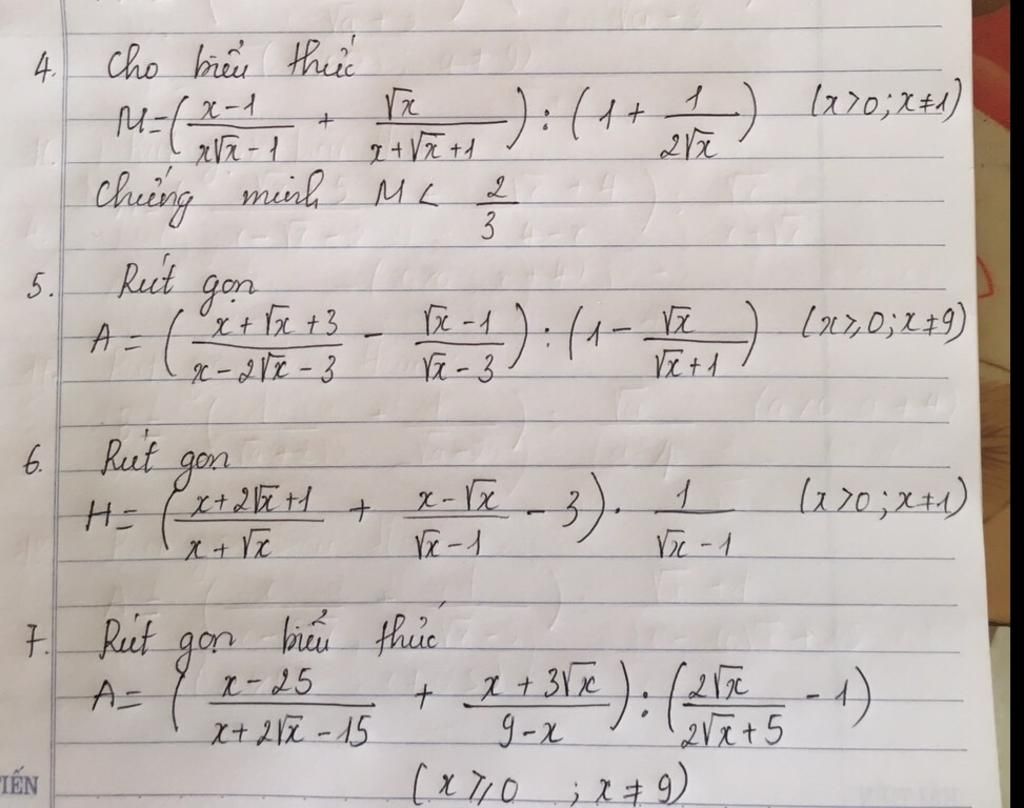 4. Cho biểu thức
M=(\frac{x-1}{x\sqrt{x}-1} + \frac{\sqrt{x}}{x+\sqrt{x}+1}) : (1+\frac{1}{2\sqrt{x}}) (x>0; x≠1)
Chứng minh M < \frac{2}{3}
5. Rút gọn
A = (\frac{x+\sqrt{x}+3}{x-2\sqrt{x}-3} - \frac{\sqrt{x}-1}{\sqrt{x}-3}) : (1-\frac{\sqrt{x}}{\sqrt{x}+1}) (x⩾0; x≠9)
6. Rút gọn
H= (\frac{x+2\sqrt{x}+1}{x+\sqrt{x}} + \frac{x-\sqrt{x}}{\sqrt{x}-1} - 3) \cdot \frac{1}{\sqrt{x}-1} (x>0; x≠1)
7. Rút gọn biểu thức
A= (\frac{x-25}{x+2\sqrt{x}-15} + \frac{x+3\sqrt{x}}{9-x}) : (\frac{2\sqrt{x}}{2\sqrt{x}+5} - 1)
(x⩾0 ; x≠9)
IẾN